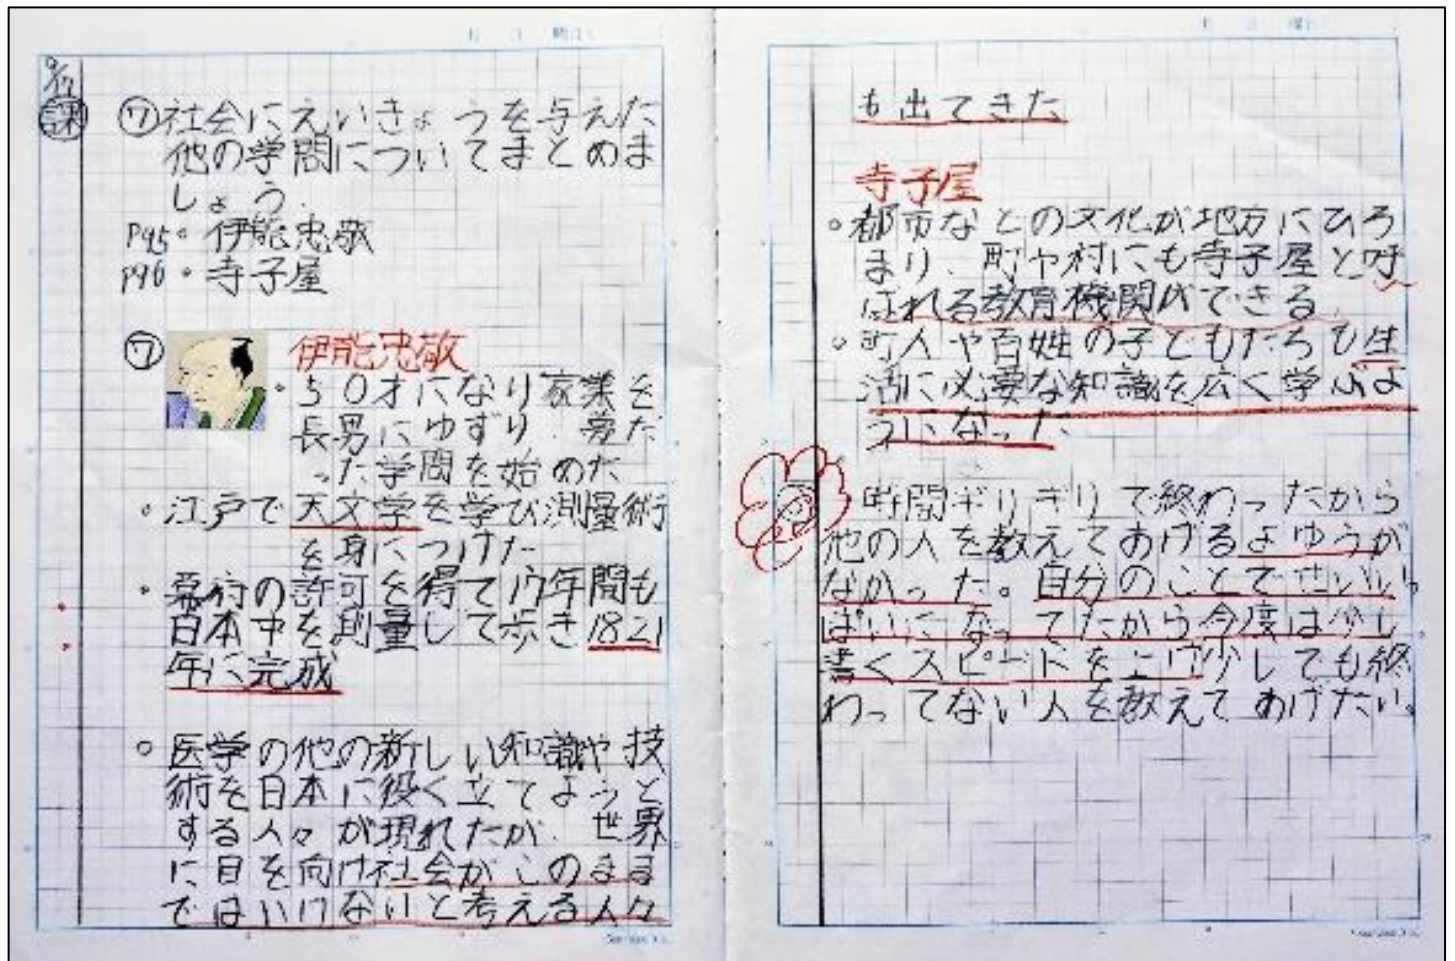 月 日 曜日
9/12
課 ㋒社会にえいきょうを与えた
他の学問についてまとめま
しょう.
P95。伊能忠敬
P96・寺子屋
㋒ 伊能忠敬
・50才になり家業を
長男にゆずり.夢だ
った学問を始めた
・江戸で天文学を学び測量術
を身につけた
・幕府の許可を得て17年間も
日本中を測量して歩き1821
年に完成
。医学の他の新しい知識や技
術を日本に役く立てようと
する人々が現れたが.世界
に目を向け社会がこのまま
ではいけないと考える人々
月 日 曜日
も出てきた
寺子屋
。都市などの文化が地方にひろ
まり、町や村にも寺子屋と呼
ばれる教育機関ができる.
。町人や百姓の子どもたちも生
活に必要な知識を広く学ぶよ
うになった
時間ギリギリで終わったから
他の人を教えてあげるよゆうが
なかった。自分のことでせいいっ
ぱいになってたから今度は少し
書くスピードを上げ少しでも終
わってない人を教えてあげたい。